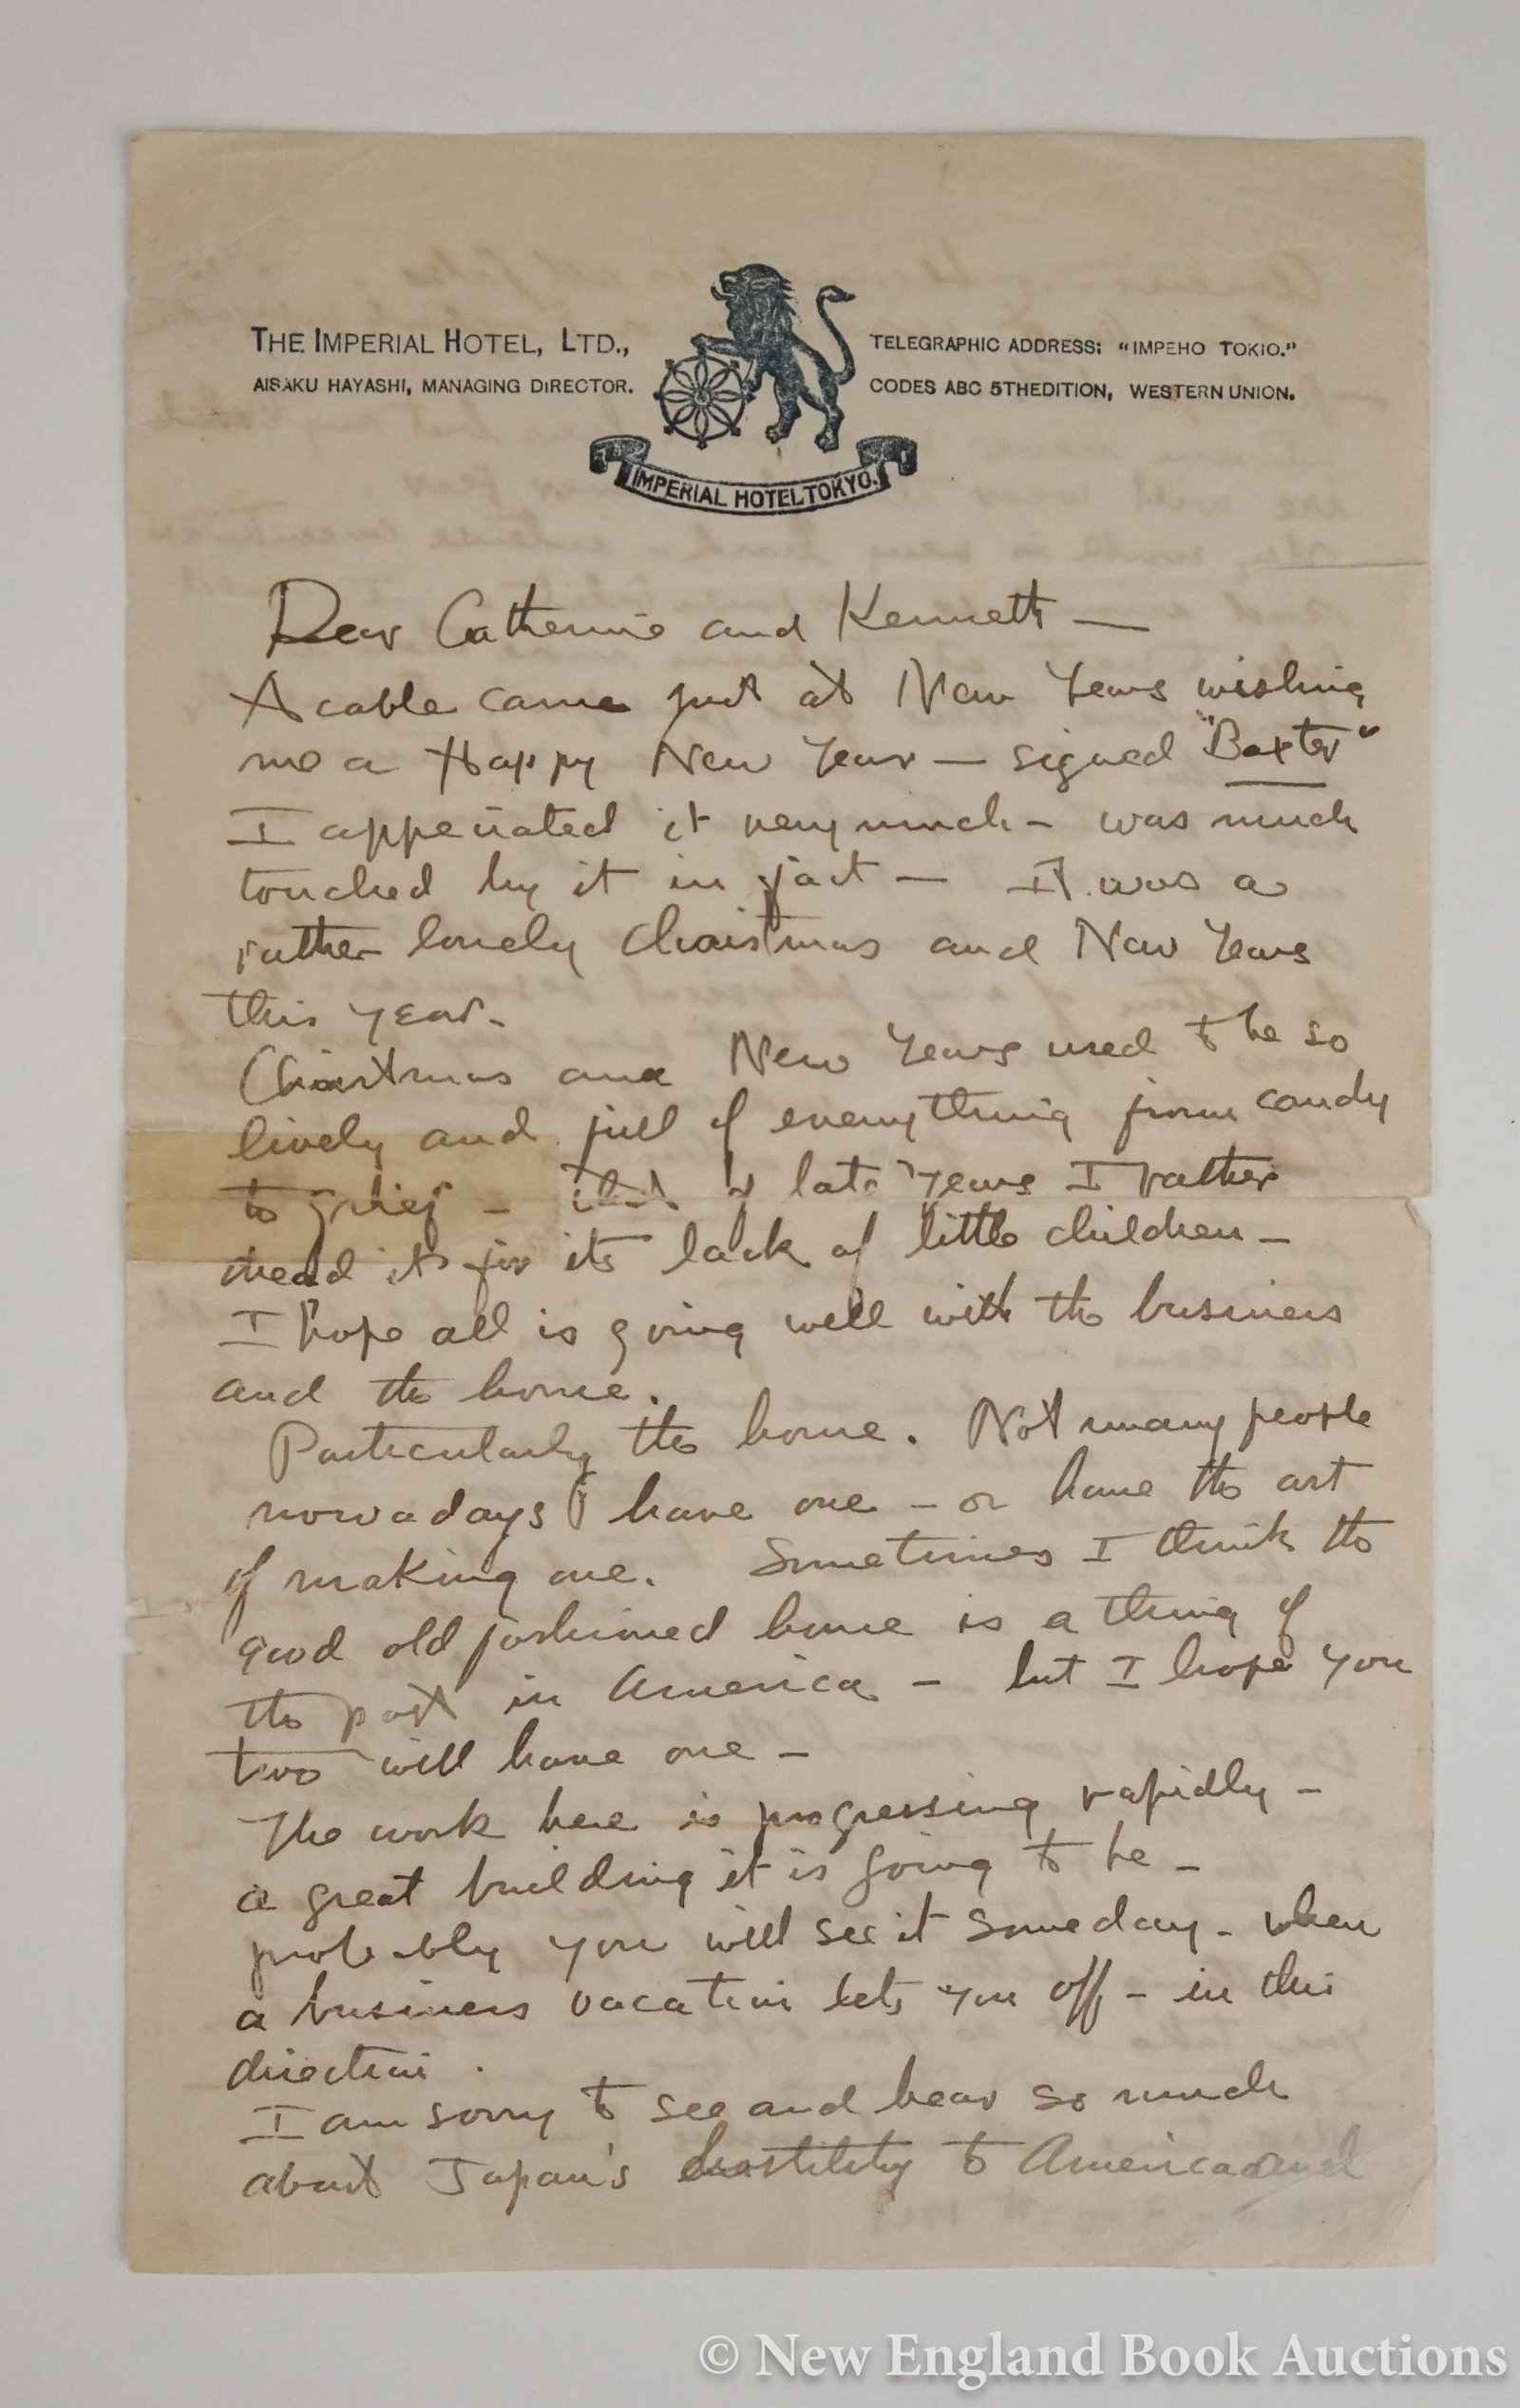 THE IMPERIAL HOTEL, LTD.,
AISAKU HAYASHI, MANAGING DIRECTOR.
TELEGRAPHIC ADDRESS: "IMPEHO TOKIO."
CODES ABC 5THEDITION, WESTERN UNION.
IMPERIAL HOTEL TOKYO.
Dear Catherine and Kenneth —
A cable came just at New Years wishing
me a Happy New Year — signed "Baxter"
I appeciated it very much - was much
touched by it in fact — It was a
rather lonely Christmas and New Years
this year.
Christmas and New Years used to be so
lively and full of everything from candy
to grief - of late years I rather
dread it for its lack of little children -
I hope all is going well with the business
and the home.
Particularly the home. Not many people
nowadays have one - or have the art
of making one. Sometimes I think the
good old fashioned home is a thing of
the past in America - but I hope you
two will have one -
The work here is progressing rapidly -
a great building it is going to be -
probably you will see it someday - when
a business vacation lets you off - in this
direction.
I am sorry to see and hear so much
about Japan's hostility to America and
© New England Book Auctions